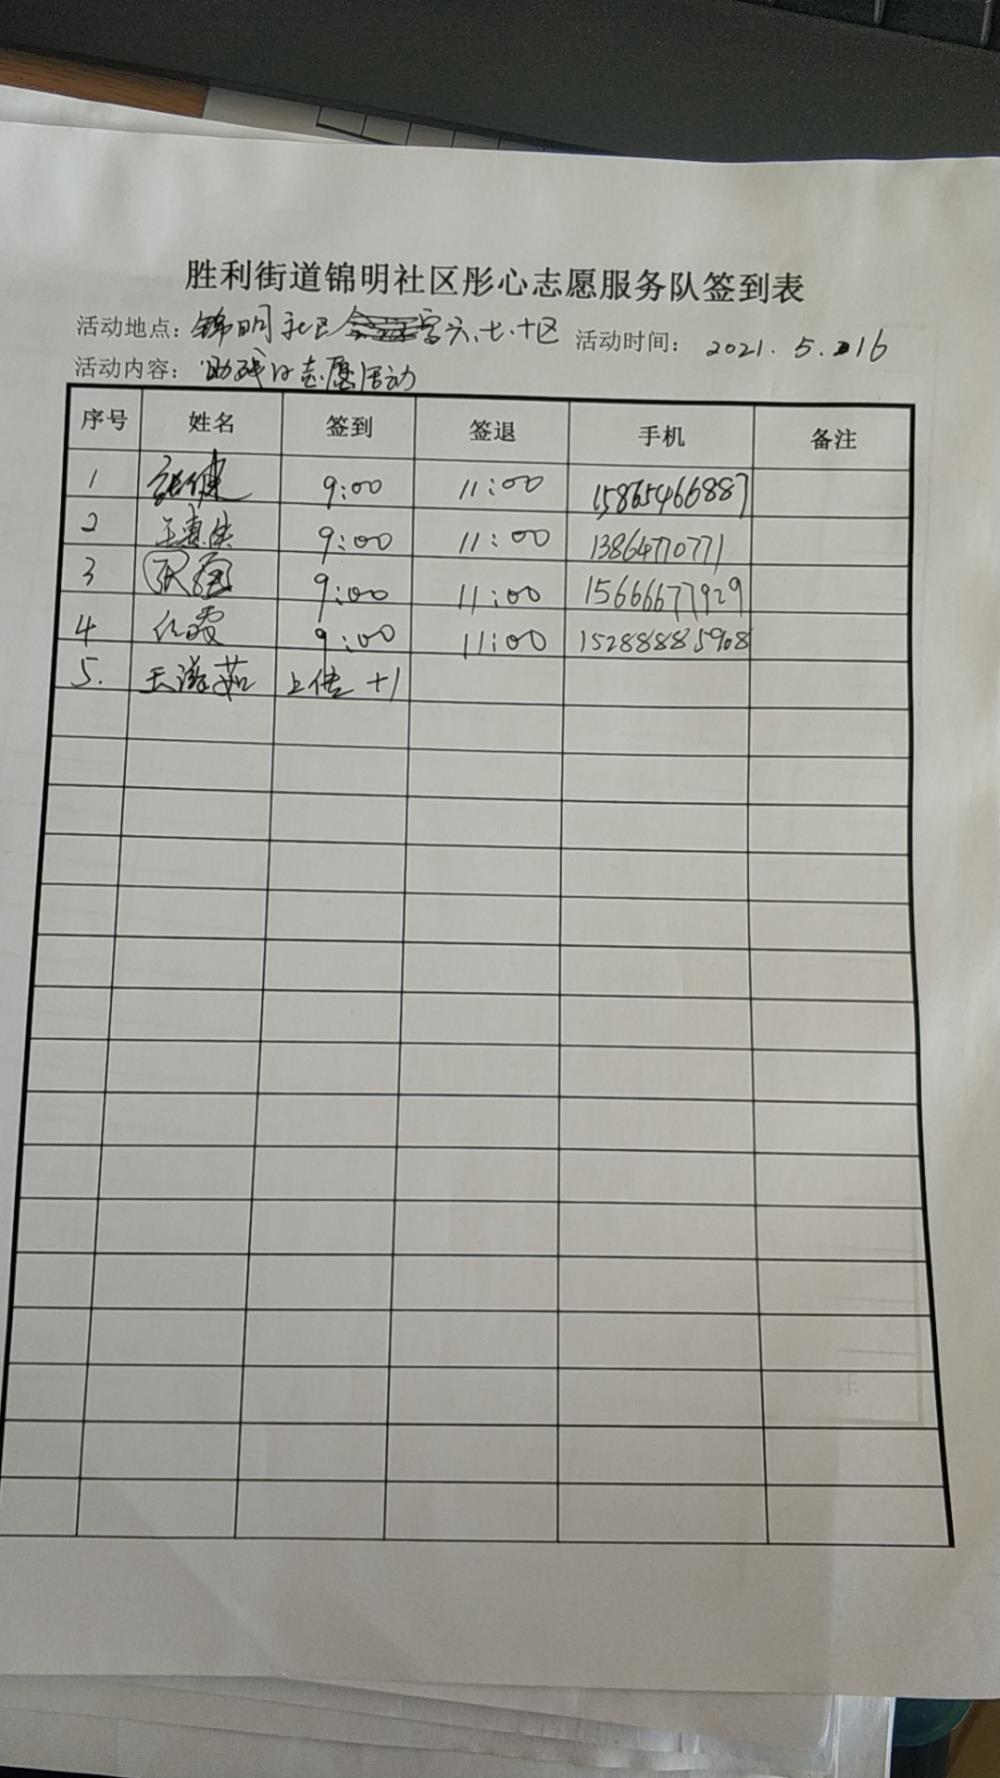 胜利街道锦明社区彤心志愿服务队签到表
活动地点：锦明社区 宫六.七.十区 活动时间： 2021. 5. 16
活动内容：助残日志愿活动
序号 姓名 签到 签退 手机 备注
1 张健 9:00 11:00 15865466887
2 王惠 9:00 11:00 13864770771
3 9:00 11:00 15666677929
4 任霞 9:00 11:00 15288885908
5. 王滋茹 上传 +1